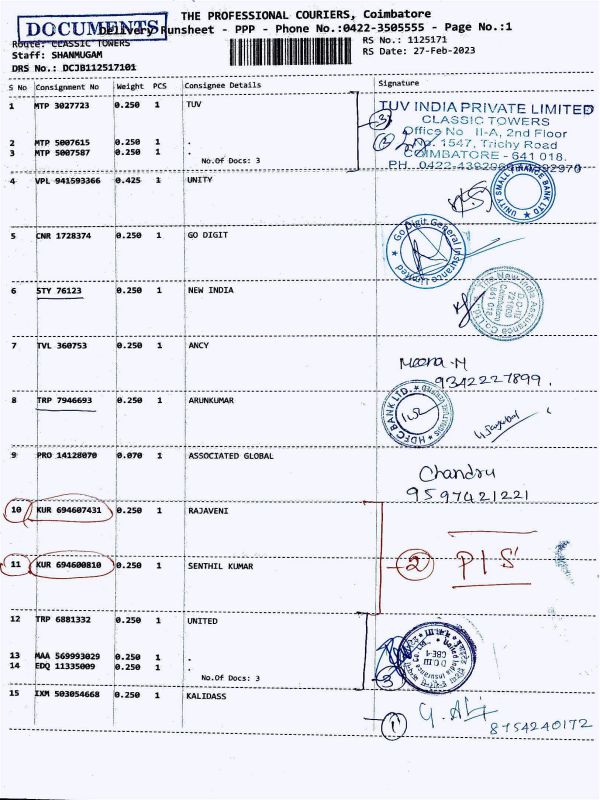 THE PROFESSIONAL COURIERS, Coimbatore
DOCUMENTS
Delivery Runsheet - PPP - Phone No.:0422-3505555 - Page No.:1
Route: CLASSIC TOWERS
RS No.: 1125171
Staff: SHANMUGAM
RS Date: 27-Feb-2023
DRS No.: DCJB112517101
S No Consignment No Weight PCS Consignee Details Signature
1 MTP 3027723 0.250 1 TUV
TUV INDIA PRIVATE LIMITED
CLASSIC TOWERS
Office No II-A, 2nd Floor
No. 1547, Trichy Road
COIMBATORE - 641 018.
3
2 MTP 5007615 0.250 1 .
3 MTP 5007587 0.250 1 .
No.Of Docs: 3
4 VPL 941593366 0.425 1 UNITY
UNITY SMALL FINANCE BANK LTD
5 CNR 1728374 0.250 1 GO DIGIT
Go Digit General Insurance Limited
6 STY 76123 0.250 1 NEW INDIA
The New India Assurance Co. Ltd.
7 TVL 360753 0.250 1 ANCY
Meena.M
9342227899.
8 TRP 7946693 0.250 1 ARUNKUMAR
HDFC BANK LTD.
9 PRO 14128070 0.070 1 ASSOCIATED GLOBAL
Chandru
9597421221
10 KUR 694607431 0.250 1 RAJAVENI
11 KUR 694600810 0.250 1 SENTHIL KUMAR
2 PIS
12 TRP 6881332 0.250 1 UNITED
13 MAA 569993029 0.250 1 .
14 EDQ 11335009 0.250 1 .
No.Of Docs: 3
3
15 IXM 503054668 0.250 1 KALIDASS
1
8754240172